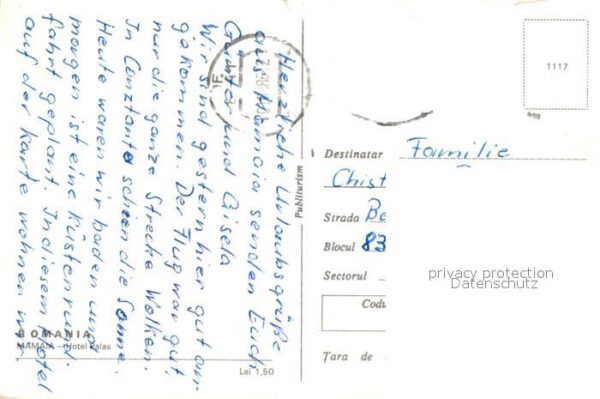 Herzliche Urlaubsgrüße
aus Mamaia senden Euch
Günter und Gisela
Wir sind gestern hier gut an-
gekommen. Der Flug war gut,
nur die ganze Strecke Wolken.
In Constanta schien die Sonne.
Heute waren wir baden und
morgen ist eine Küstenrund-
fahrt geplant. In diesem Hotel
auf der Karte wohnen wir
ROMANIA
MAMAIA – Hotel Palas
Lei 1,50
Publiturism
1117
Destinatar Familie
Christ
Strada Be
Blocul 83
Sectorul
Codu
Țara de
privacy protection
Datenschutz